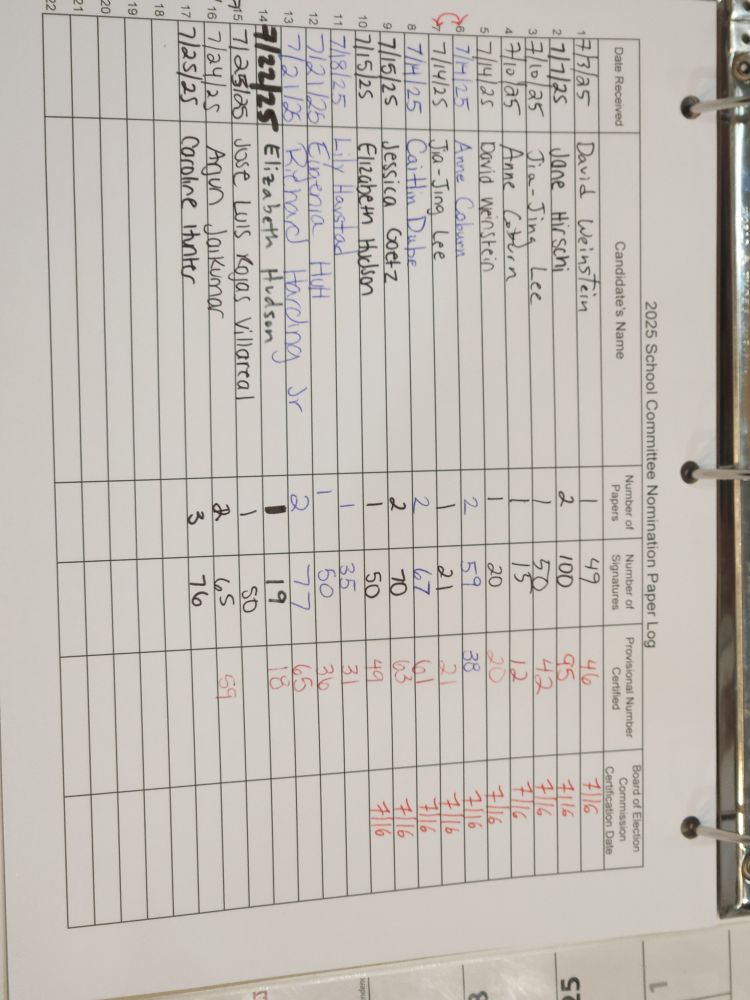 2025 School Committee Nomination Paper Log
Date Received Candidate's Name Number of Papers Number of Signatures Provisional Number Certified Board of Election Commission Certification Date
1 7/3/25 David Weinstein 1 49 46 7/16
2 7/7/25 Jane Hirschi 2 100 95 7/16
3 7/10/25 Jia-Jing Lee 1 50 42 7/16
4 7/10/25 Anne Coburn 1 15 12 7/16
5 7/14/25 David Weinstein 1 20 20 7/16
6 7/14/25 Anne Coburn 2 59 38 7/16
7 7/14/25 Jia-Jing Lee 1 21 21 7/16
8 7/14/25 Caitlin Dube 2 67 61 7/16
9 7/15/25 Jessica Goetz 2 70 63 7/16
10 7/15/25 Elizabeth Hudson 1 50 49 7/16
11 7/18/25 Lily 1 35 31
12 7/21/25 Eugenia Huh 1 50 36
13 7/21/25 Richard Harding Jr 2 77 65
14 7/22/25 Elizabeth Hudson 1 19 18
15 7/25/25 Jose Luis Rojas Villareal 1 50
16 7/24/25 Arjun Jaikumar 2 65 59
17 7/25/25 Caroline Hunter 3 76
18
19
20
21
22